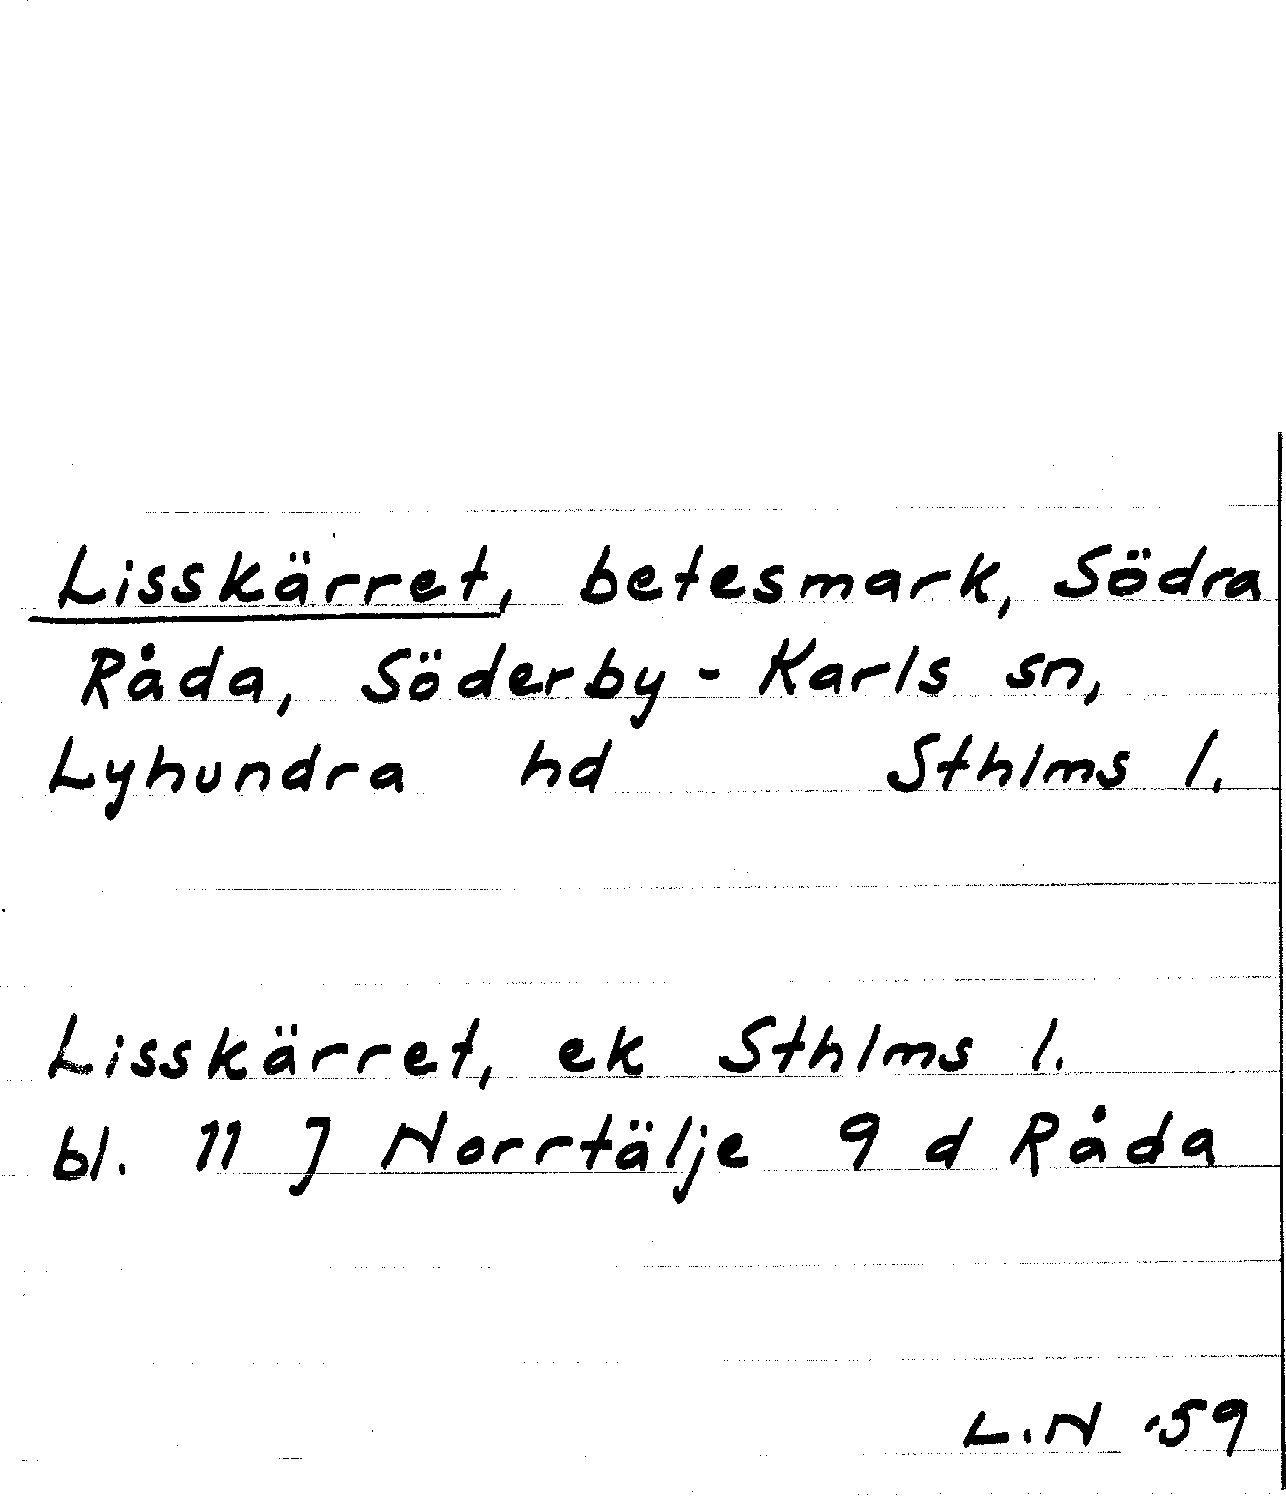 Lisskärret, betesmark, Södra
Råda, Söderby-Karls sn,
Lyhundra hd Sthlms l.
Lisskärret, ek Sthlms l.
bl. 11 J Norrtälje 9 d Råda
L.N -59